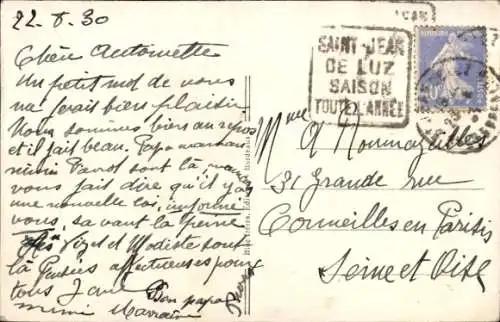 22-8-30
Chère Antoinette
Un petit mot de vous
me ferait bien plaisir
Nous sommes bien au repos
et il fait beau. Papa maman
mimi sont là
vous fait dire qu'il y a
une nouvelle loi, informez
vous, sa vaut la peine
et Modiste sont
là Pensées affectueuses pour
tous
Bon papa
mimi Marraine
SAINT-JEAN
DE LUZ
SAISON
TOUTE L'ANNÉE
JEAN
Mme A
31 Grande rue
Cormeilles en Parisis
Seine et Oise